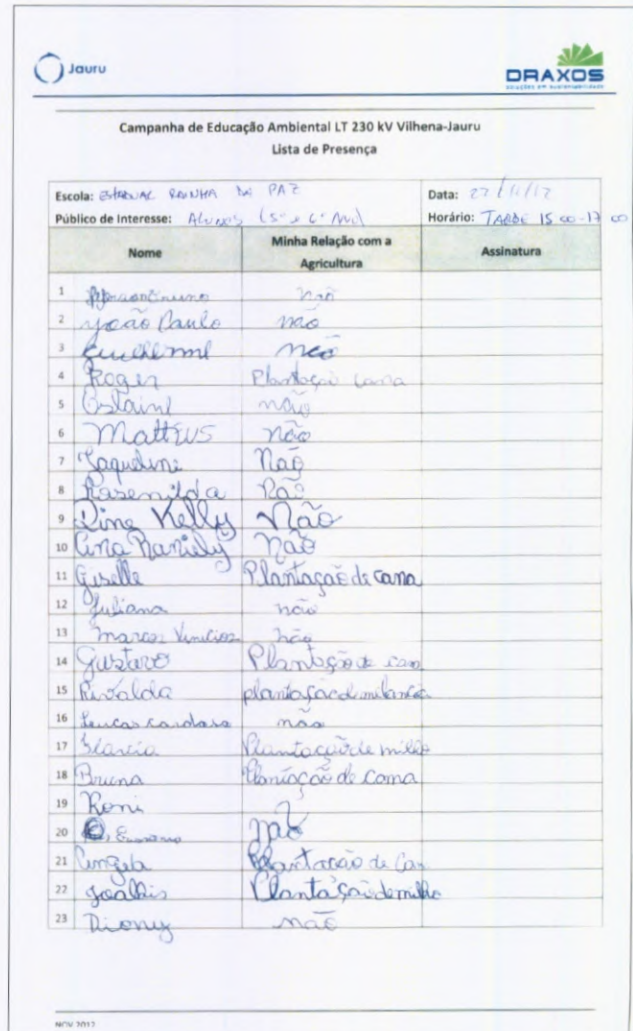 Jauru
DRAXOS
SOLUÇÕES EM SUSTENTABILIDADE
Campanha de Educação Ambiental LT 230 kV Vilhena-Jauru
Lista de Presença
Escola: ESTADUAL RAINHA DA PAZ Data: 27/11/12
Público de Interesse: Alunos (5º e 6º Horário: TARDE 15 00-17 00
Nome Minha Relação com a Agricultura Assinatura
1 não
2 João Paulo não
3 Guilherme não
4 Roger Plantação cana
5 não
6 Mattus Não
7 Jaqueline Não
8 Rosenilda Não
9 Kelly Não
10 Ana Raniely Não
11 Giselle Plantação de cana
12 Juliana não
13 Marcos Vinicios não
14 Gustavo Plantação de
15 Rivalda plantação de melancia
16 Lucas cardoso não
17 Plantação de milho
18 Bruna Plantação de cana
19 Roni
20 não
21 Angela Plantação de
22 Joalhis Plantação de milho
23 Diony não
NOV 2012